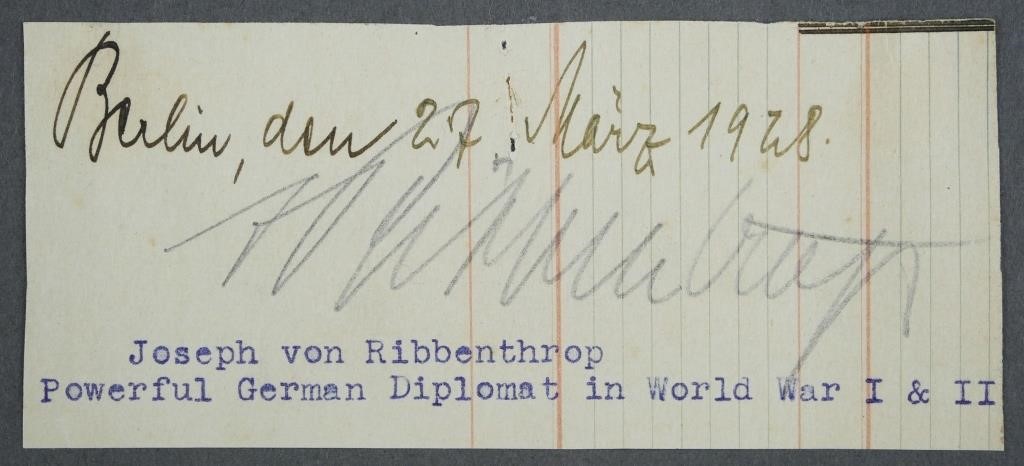 Berlin, den 27. März 1928.
Joseph von Ribbenthrop
Powerful German Diplomat in World War I & II